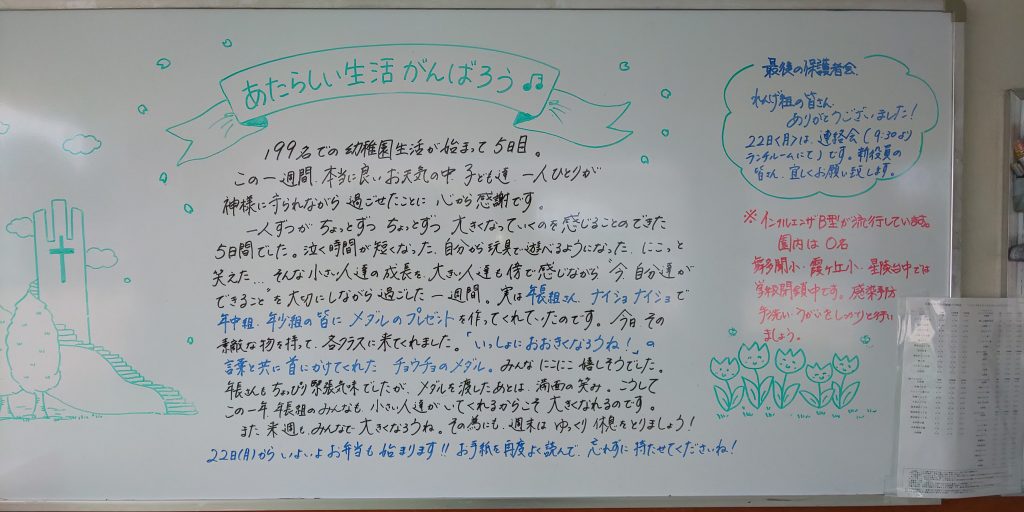 あたらしい生活がんばろう♫
199名での幼稚園生活が始まって5日目。
この一週間、本当に良いお天気の中、子ども達一人ひとりが
神様に守られながら過ごせたことに心から感謝です。
一人ずつが ちょっとずつ ちょっとずつ 大きくなっていくのを感じることのできた
5日間でした。泣く時間が短くなった、自分から玩具で遊べるようになった、にこっと
笑えた…そんな小さい人達の成長を、大きい人達も傍で感じながら“今、自分達が
できること”を大切にしながら過ごした一週間。実は年長組さん、ナイショナイショで
年中組、年少組の皆にメダルのプレゼントを作ってくれていたのです。今日、その
素敵な物を持って、各クラスに来てくれました。「いっしょにおおきくなろうね！」の
言葉と共に首にかけてくれた チョウチョのメダル。みんなにこにこ嬉しそうでした。
年長さんもちょっぴり緊張気味でしたが、メダルを渡したあとは、満面の笑み。こうして
この一年、年長組のみんなも、小さい人達がいてくれるからこそ大きくなれるのです。
また、来週も、みんなで大きくなろうね。その為にも、週末はゆっくり休息をとりましょう！
22日(月)からいよいよお弁当も始まります!! お手紙を再度よく読んで、忘れずに持たせてくださいね！
最後の保護者会
れんげ組の皆さん、
ありがとうございました！
22日〈月〉は、連絡会（9:30より
ランチルームにて）です。新役員の
皆さん、宜しくお願い致します。
※インフルエンザB型が流行しています。
園内は0名
舞多聞小・霞ヶ丘小・星陵台中では
学級閉鎖中です。感染予防
手洗い・うがいをしっかりと行い
ましょう。